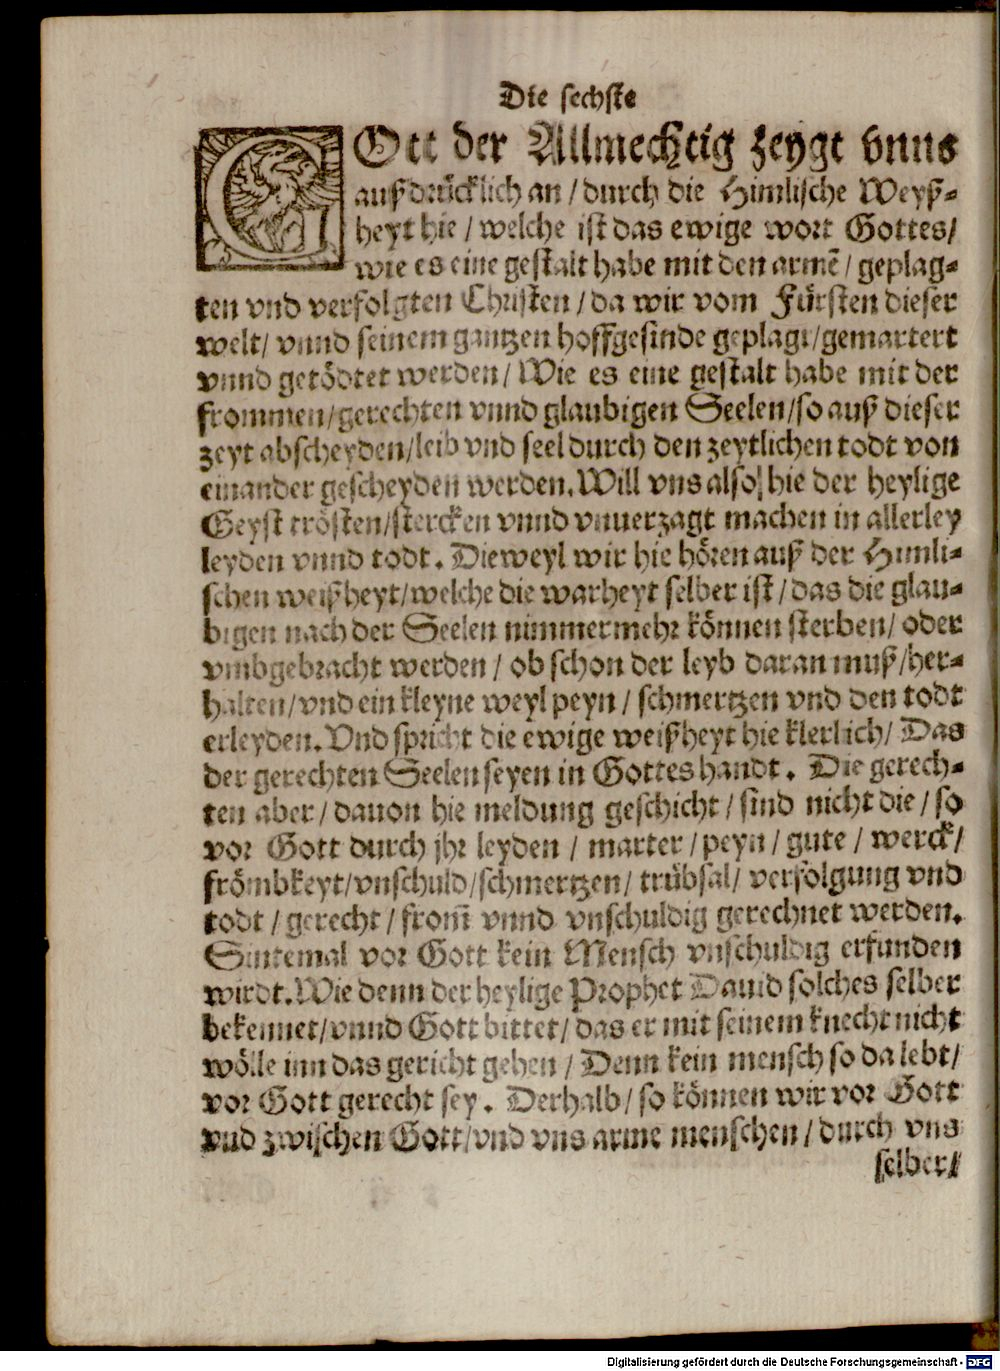 Die sechste
GOtt der Allmechtig zeygt vnns
außdrücklich an / durch die Himlische Weyß-
heyt hie / welche ist das ewige wort Gottes/
wie es eine gestalt habe mit den armẽ / geplag-
ten vnd verfolgten Christen / da wir vom Fürsten dieser
welt/ vnnd seinem gantzen hoffgesinde geplagt/gemartert
vnnd getödtet werden/ Wie es eine gestalt habe mit der
frommen/gerechten vnnd glaubigen Seelen/so auß dieser
zeyt abscheyden/leib vnd seel durch den zeytlichen todt von
einander gescheyden werden. Will vns also hie der heylige
Geyst trösten/stercken vnnd vnuerzagt machen in allerley
leyden vnnd todt. Dieweyl wir hie hören auß der Himli-
schen weißheyt/welche die warheyt selber ist / das die glau-
bigen nach der Seelen nimmermehr können sterben/ oder
vmbgebracht werden / ob schon der leyb daran muß/her-
halten/vnd ein kleyne weyl peyn / schmertzen vnd den todt
erleyden. Vnd spricht die ewige weißheyt hie klerlich/ Das
der gerechten Seelen seyen in Gottes handt. Die gerech-
ten aber / dauon hie meldung geschicht / sind nicht die / so
vor Gott durch jhr leyden / marter / peyn / gute / werck/
frömbkeyt/vnschuld/schmertzen/ trübsal/ verfolgung vnd
todt / gerecht / from̃ vnnd vnschuldig gerechnet werden.
Sintemal vor Gott kein Mensch vnschuldig erfunden
wirdt. Wie denn der heylige Prophet Dauid solches selber
bekennet/vnnd Gott bittet/ das er mit seinem knecht nicht
wölle inn das gericht gehen / Denn kein mensch so da lebt/
vor Gott gerecht sey. Derhalb/ so können wir vor Gott
vnd zwischen Gott/vnd vns arme menschen / durch vns
selber/
Digitalisierung gefördert durch die Deutsche Forschungsgemeinschaft - DFG